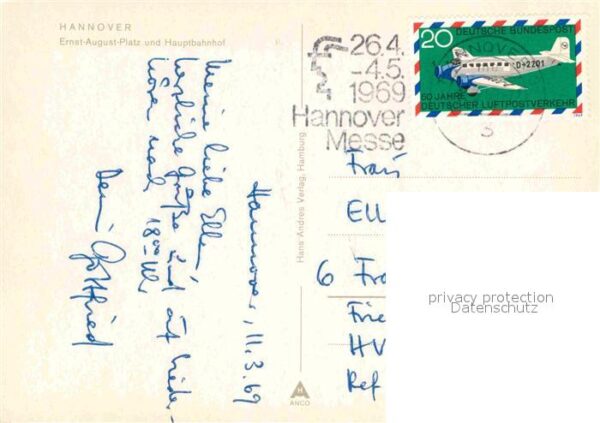 HANNOVER
Ernst-August-Platz und Hauptbahnhof
Hannover, 11.3.69
Meine liebe Ellen,
herzliche Grüße und auf Wieder-
hören nach 18ºº Uhr
Dein Gottfried
Hans Andres Verlag, Hamburg
ANCO
26.4.
-4.5.
1969
Hannover
Messe
DEUTSCHE BUNDESPOST
20
D-2201
50 JAHRE
DEUTSCHER LUFTPOSTVERKEHR
HANNOVER
3
Frau
Ell
6 Fra
Frie
HV
Ref
privacy protection
Datenschutz